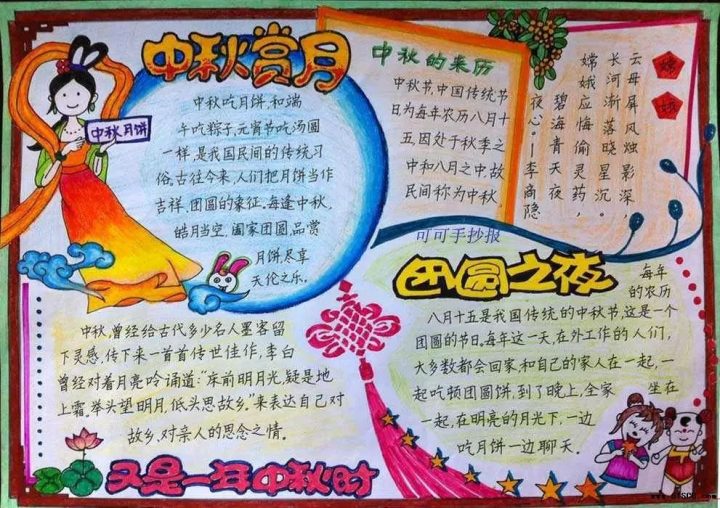 中秋赏月
中秋月饼
中秋吃月饼,和端
午吃粽子,元宵节吃汤圆
一样,是我国民间的传统习
俗,古往今来,人们把月饼当作
吉祥,团圆的象征,每逢中秋,
皓月当空,阖家团圆,品赏
月饼尽享
天伦之乐.
中秋的来历
中秋节,中国传统节
日为每年农历八月十
五,因处于秋季之
中和八月之中,故
民间称为中秋.
嫦娥
云母屏风烛影深,
长河渐落晓星沉。
嫦娥应悔偷灵药,
碧海青天夜
夜心。——李商隐
可可手抄报
团圆之夜
每年
的农历
八月十五是我国传统的中秋节,这是一个
团圆的节日,每年这一天,在外工作的人们,
大多数都会回家,和自己的家人在一起,一
起吃顿团圆饼,到了晚上,全家 坐在
一起,在明亮的月光下,一边
吃月饼一边聊天.
中秋,曾经给古代多少名人墨客留
下灵感,传下来一首首传世佳作,李白
曾经对着月亮吟诵道:"床前明月光,疑是地
上霜,举头望明月,低头思故乡,"来表达自己对
故乡,对亲人的思念之情。
又是一年中秋时